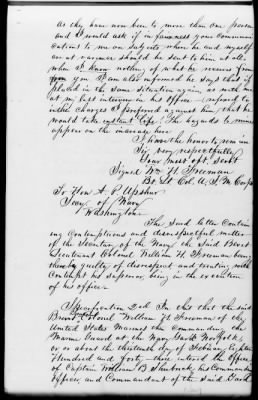 as they have now been to more than one person
and I would ask if in fairness your communi
cations to me on subjects when he and myself
are at variance should be sent to him at all.
when I know nothing of what he receives from
you I am also informed he says that if
placed in the same situation again, as with me
at my last interview in his office - refered to
in the charges I preferred against him that he
would take instant life! The hazards to mine
appear on the increase here
I have the honor to remain
Sir very respectfully
Your most obt. Servt
Signed Wm H. Freeman
Bt Lt Col. U.S.M. Corps
To Hon. A. P. Upshur
Secy of Navy
Washington
The said letter contain
ing contemptuous and disrespectful matter
of the Secretary of the Navy the said Brevt
Lieutenant Colonel William H. Freeman, being
thereby guilty of disrespect and treating with
contempt his superior, being in the execution
of his office.
Specification 2nd In this that the said
Brevt Lt Colonel William H. Freeman of the
United States Marines the commanding the
Marine Guard at the Navy Yard Norfolk,
on or about the thirteenth day of February Eighteen
Hundred and forty-three entered the Office
of Captain William B. Shubrick, his Commanding
Officer, and Commandant of the said Yard